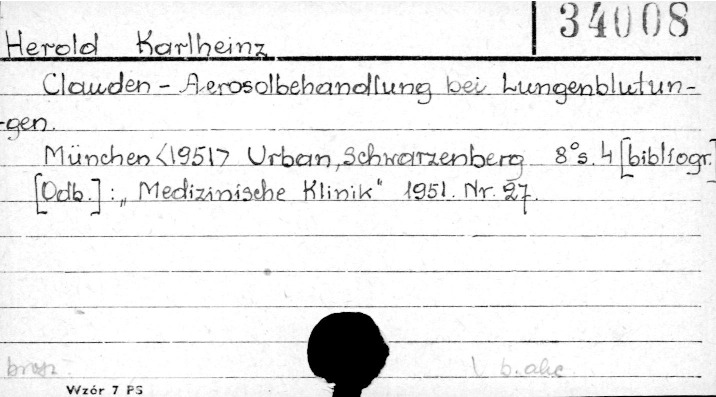 34008
Herold Karlheinz
Clauden - Aerosolbehandlung bei Lungenblutun-
-gen.
München <1951> Urban, Schwarzenberg 8° s. 4 [bibliogr.]
[Odb.]: „Medizinische Klinik" 1951. Nr. 27.
brosz.
Wzór 7 PS